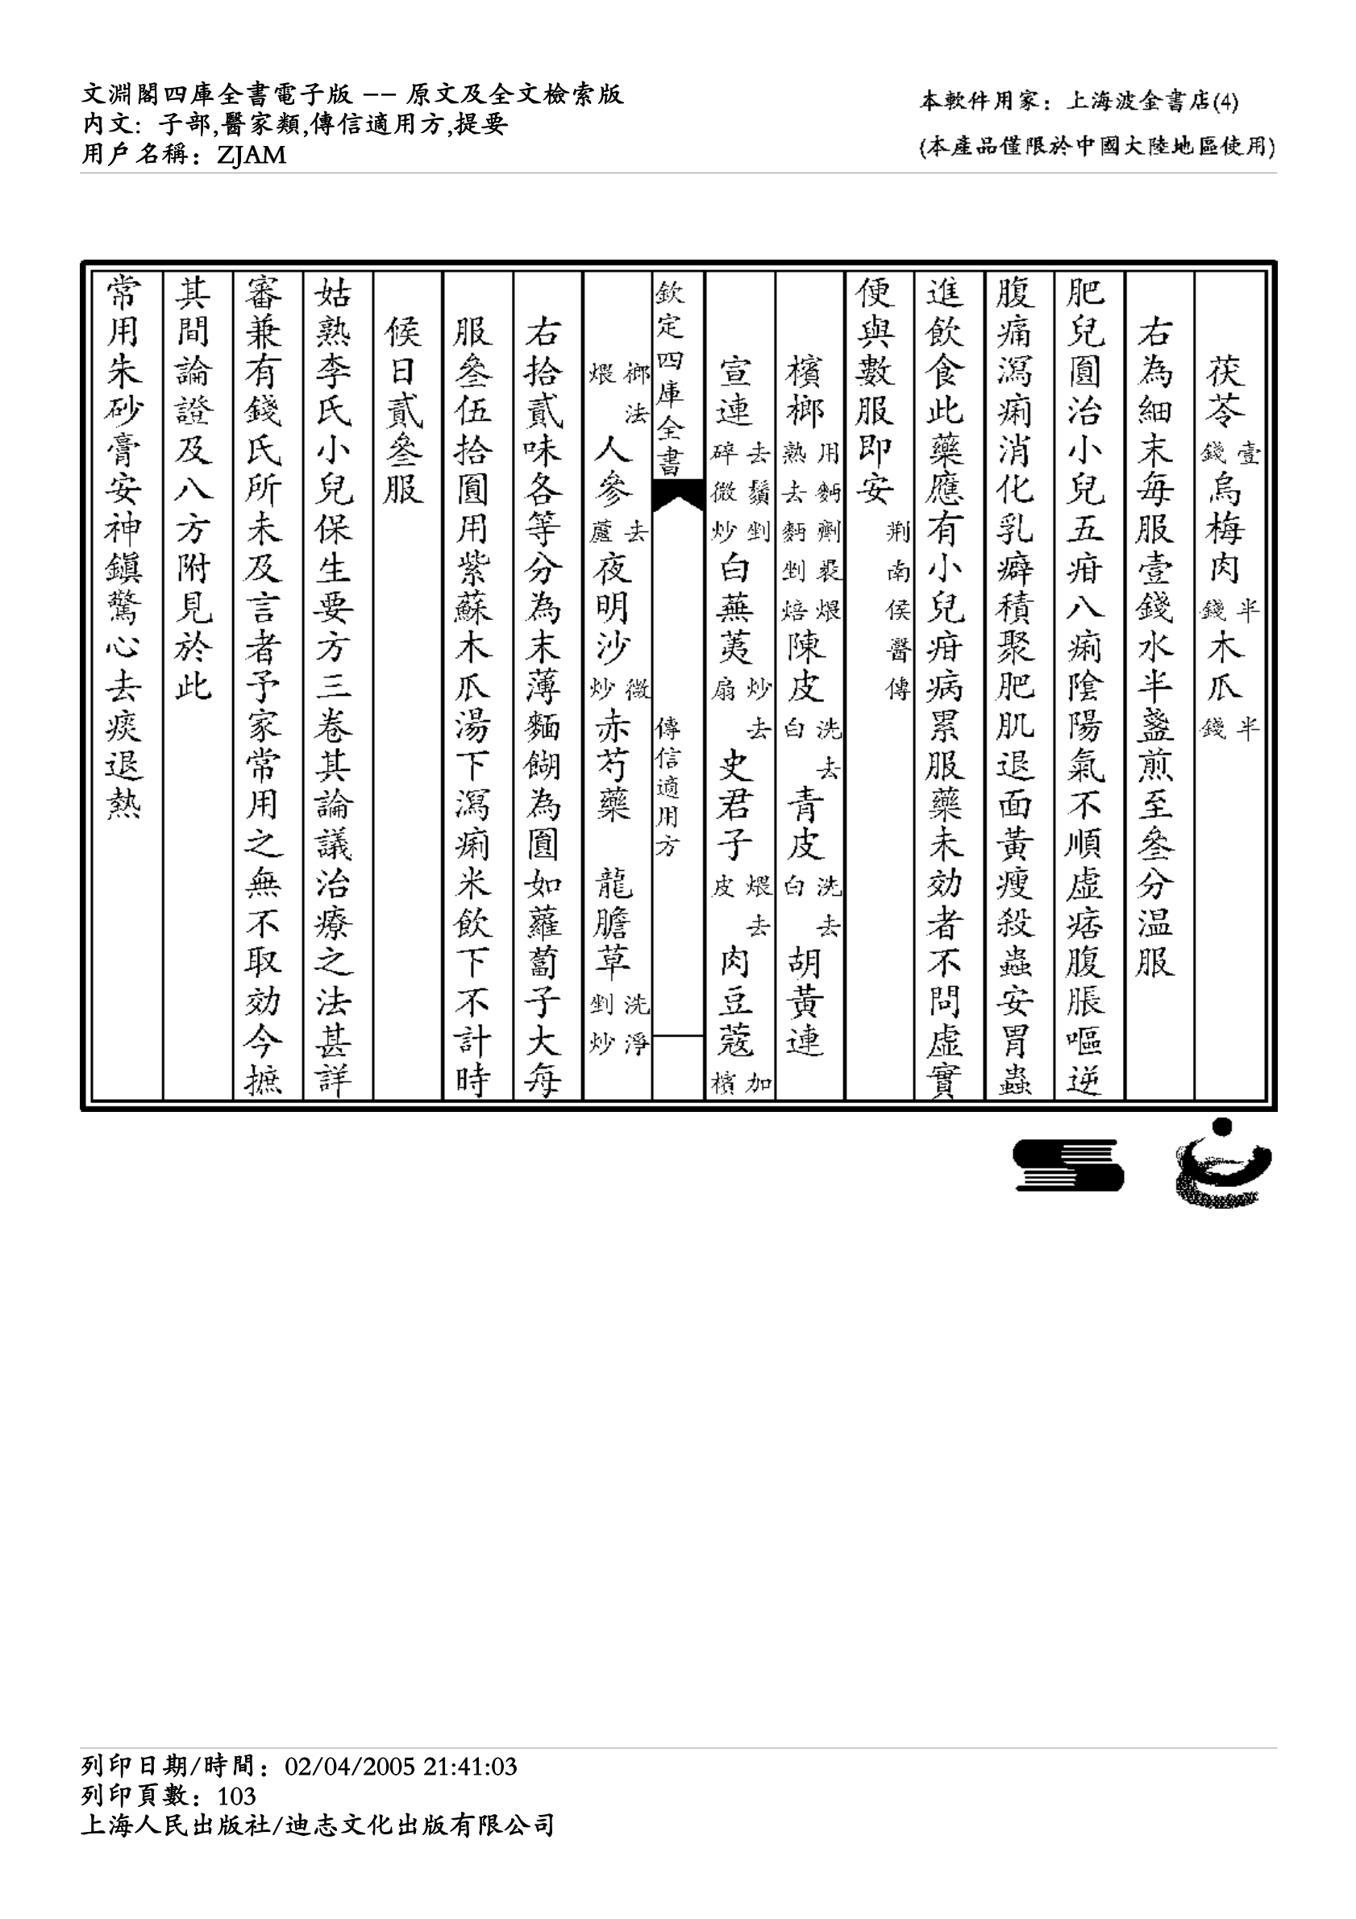 文淵閣四庫全書電子版 −− 原文及全文檢索版
内文: 子部,醫家類,傳信適用方,提要
用戶名稱: ZJAM
本軟件用家: 上海波金書店(4)
(本產品僅限於中國大陸地區使用)
茯苓壹錢烏梅肉半錢木瓜半錢
右為細末每服壹錢水半盞煎至叄分温服
肥兒圓治小兒五疳八痢陰陽氣不順虛痞腹脹嘔逆
腹痛瀉痢消化乳癖積聚肥肌退面黃瘦殺蟲安胃蟲
進飲食此藥應有小兒疳病累服藥未効者不問虛實
便與數服即安荆南侯醫傳
檳榔用麪劑裹煨熟去麪剉焙陳皮洗去白青皮洗去白胡黃連
宣連去鬚剉碎微炒白蕪荑炒去扇史君子煨去皮肉豆蔻加檳
欽定四庫全書
傳信適用方
榔法煨人參去蘆夜明沙微炒赤芍藥 龍膽草洗淨剉炒
右拾貳味各等分為末薄麵餬為圓如蘿蔔子大每
服叄伍拾圓用紫蘇木瓜湯下瀉痢米飲下不計時
候日貳叄服
姑熟李氏小兒保生要方三卷其論議治療之法甚詳
審兼有錢氏所未及言者予家常用之無不取効今摭
其間論證及八方附見於此
常用朱砂膏安神鎮驚心去痰退熱
列印日期/時間: 02/04/2005 21:41:03
列印頁數: 103
上海人民出版社/迪志文化出版有限公司